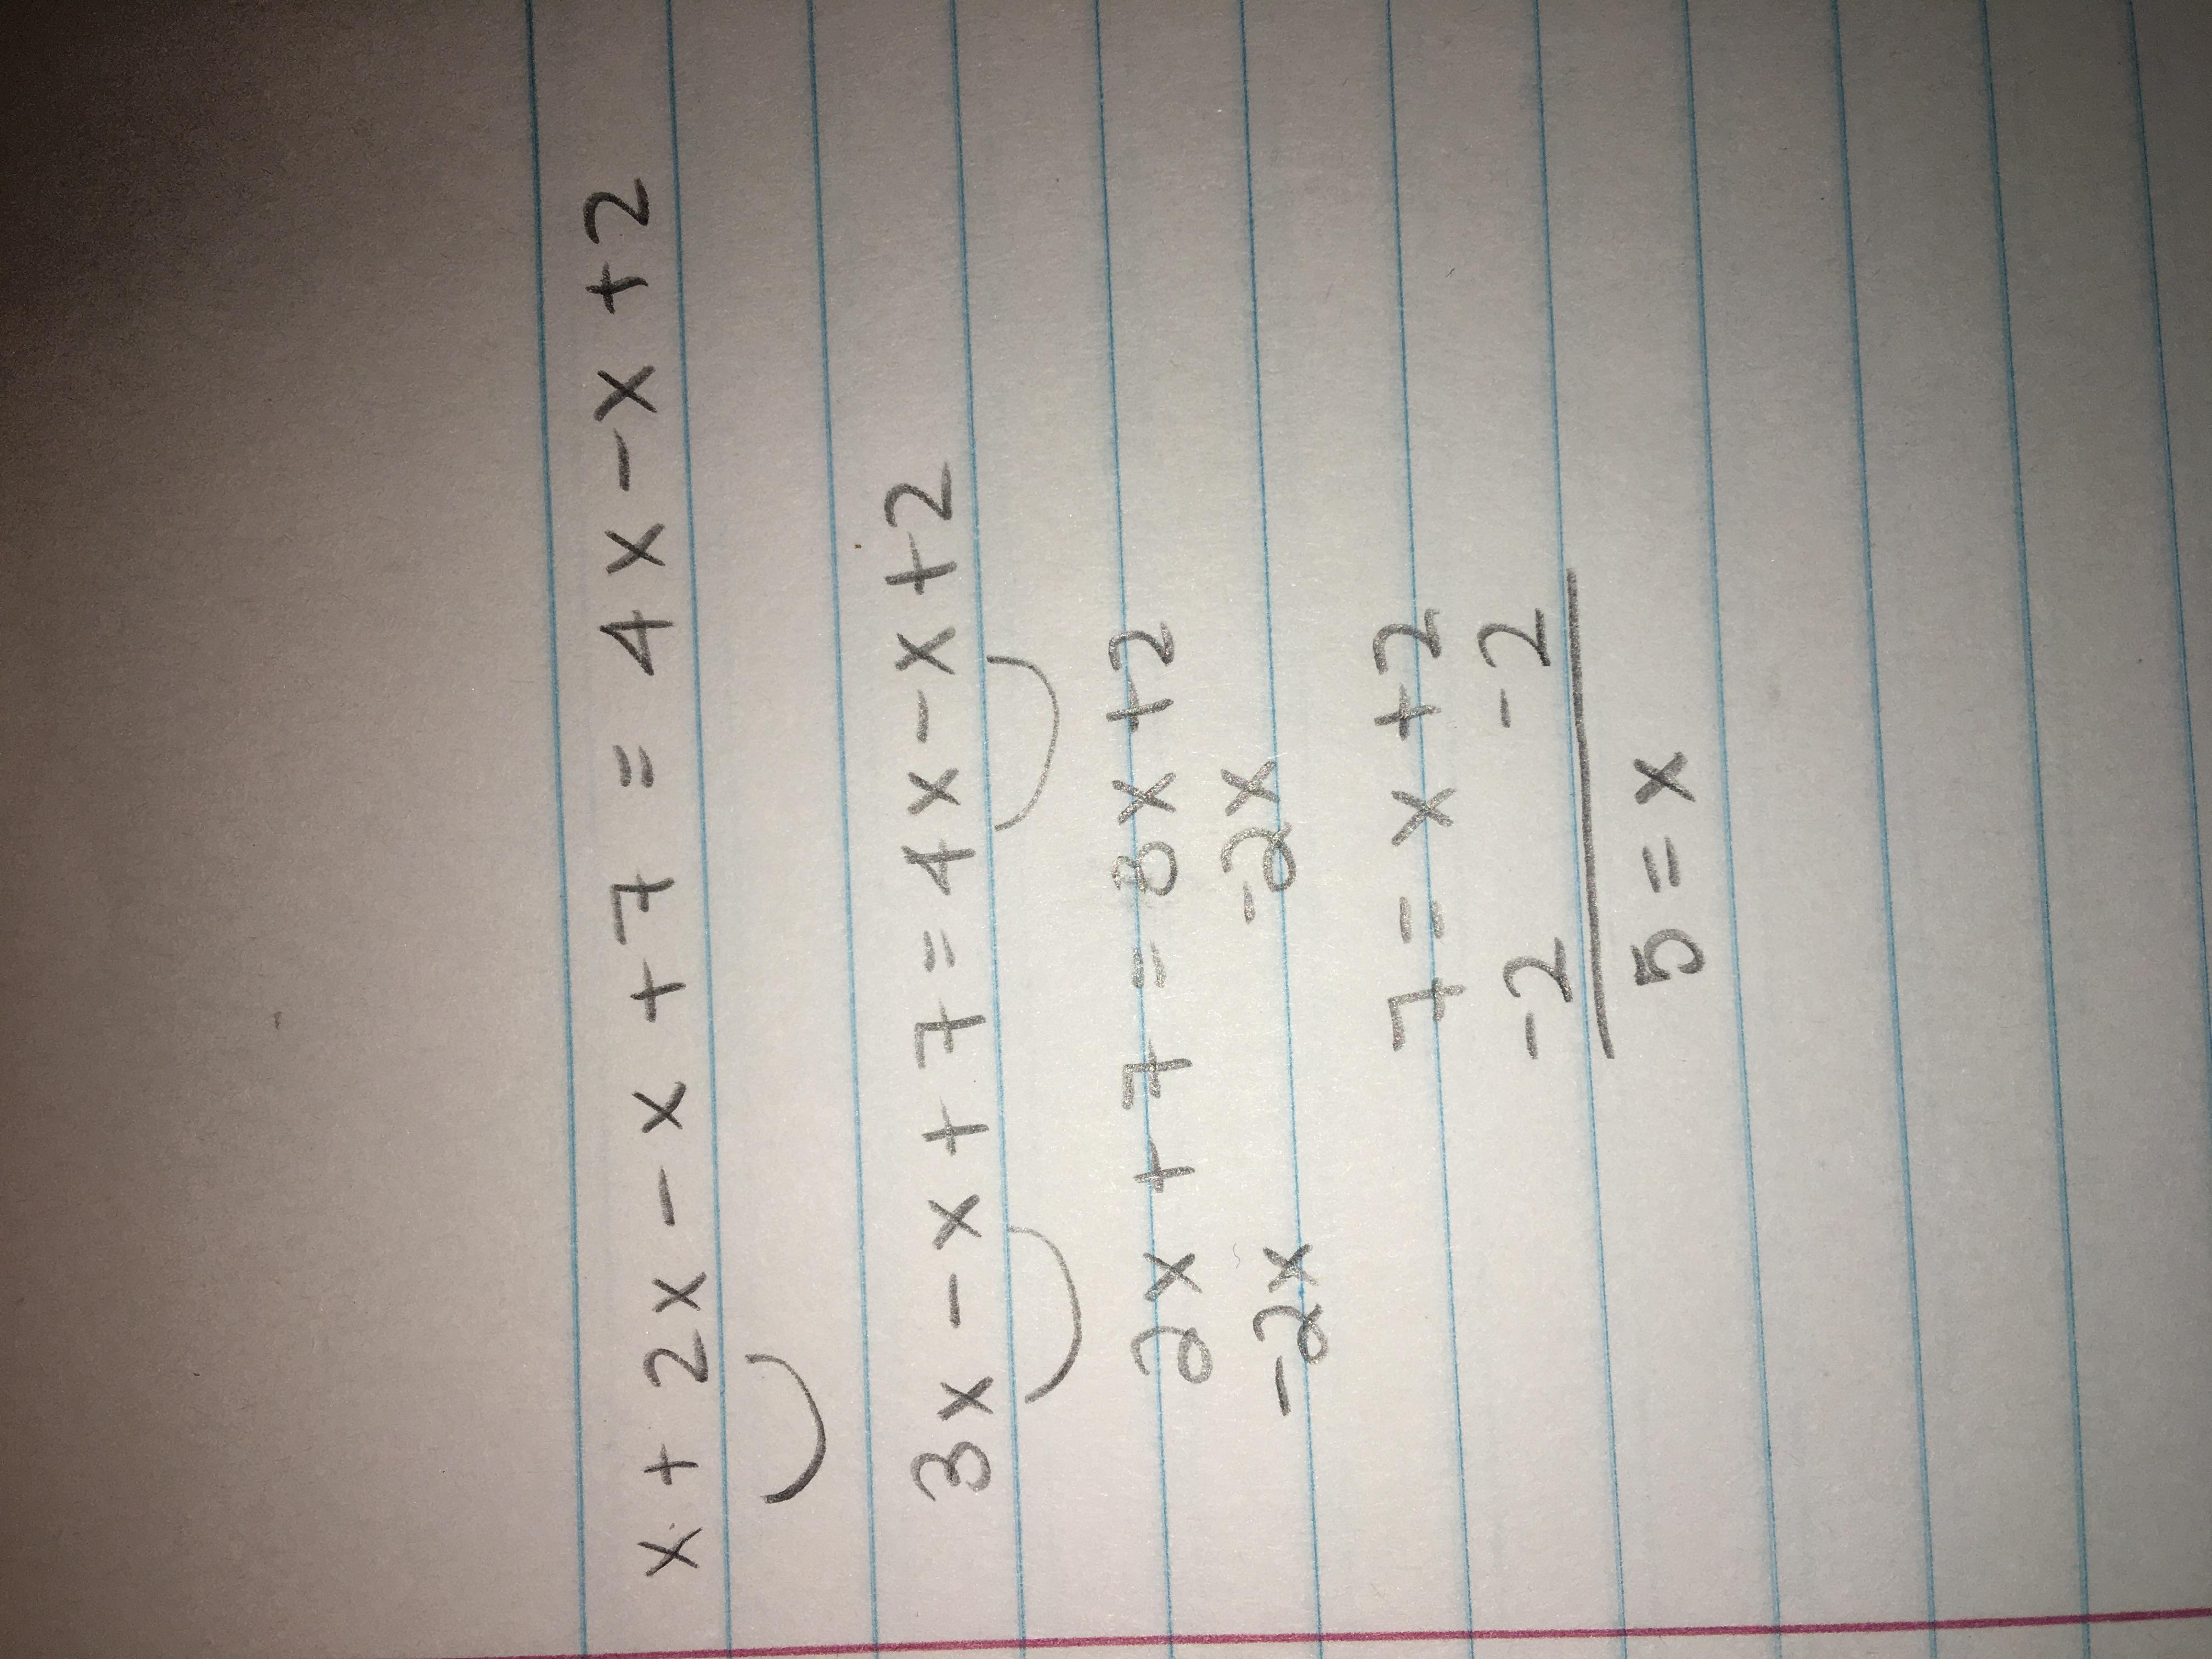 x + 2x - x + 7 = 4x - x + 2
3x - x + 7 = 4x - x + 2
2x + 7 = 3x + 2
-2x -2x
7 = x + 2
-2 -2
5 = x